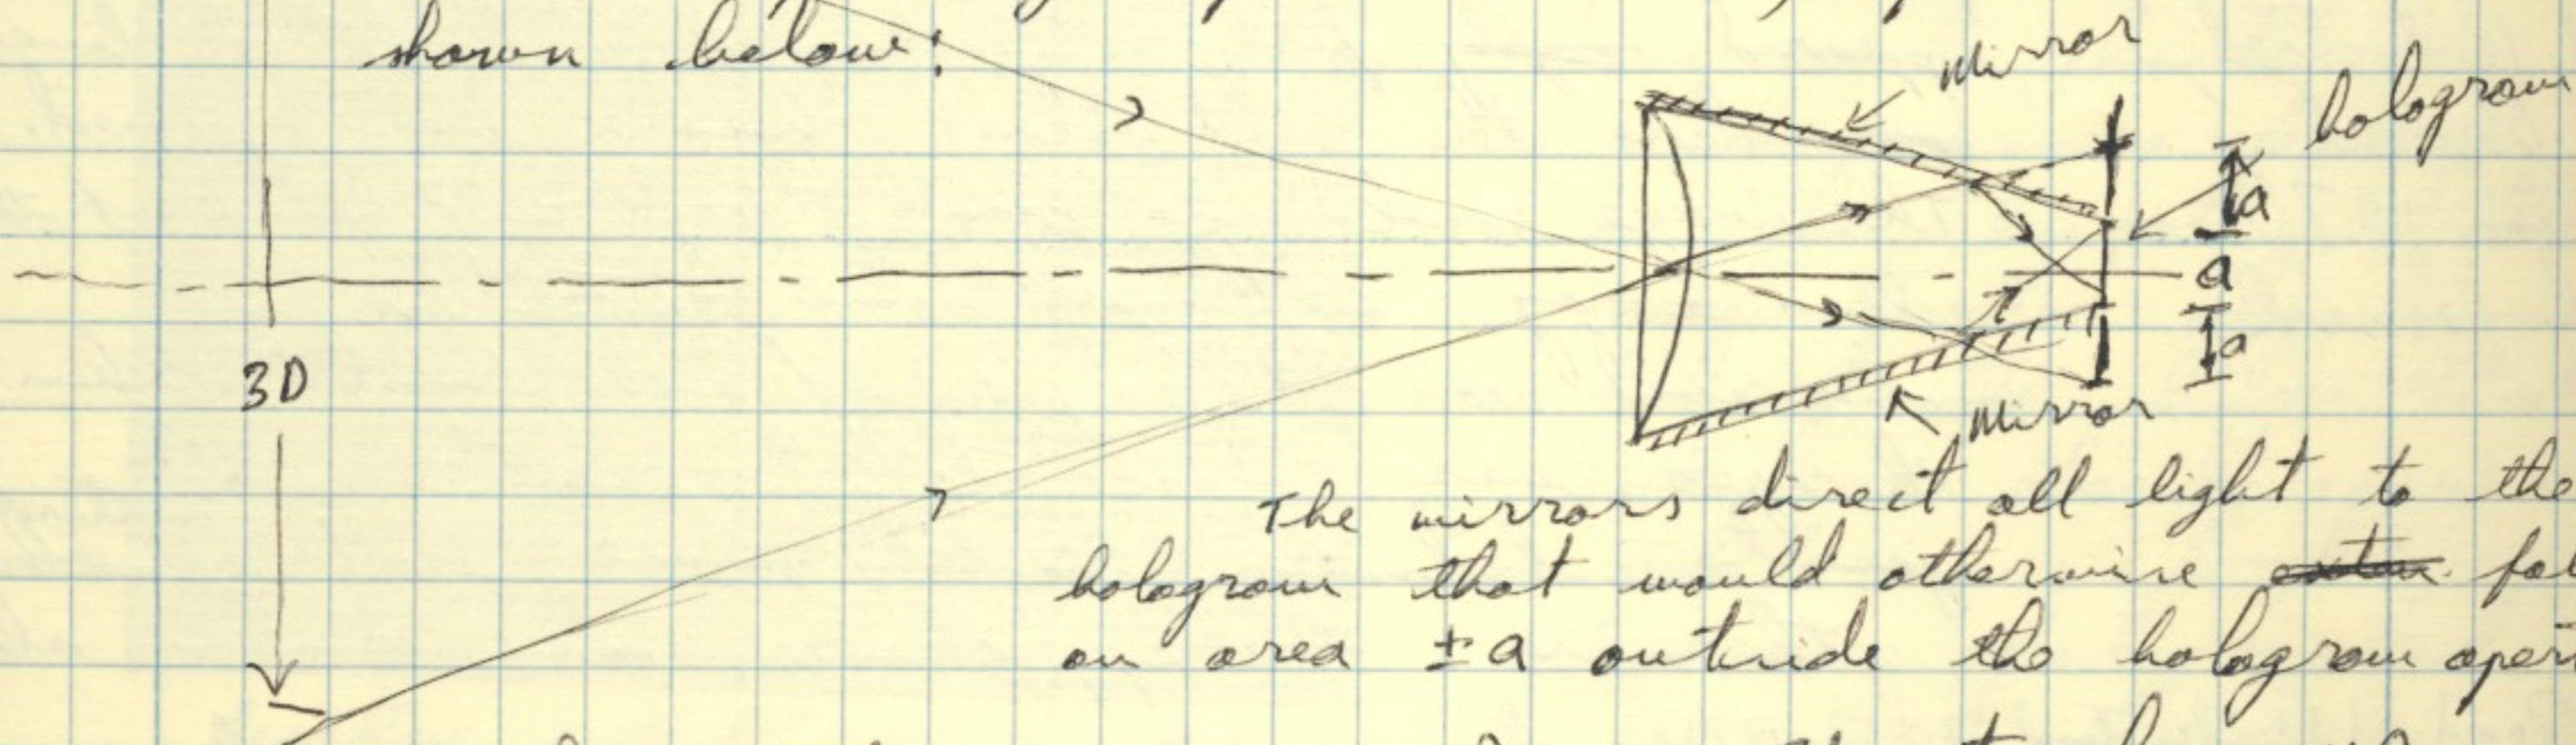 shown below:
Mirror
hologram
a
a
a
3D
Mirror
The mirrors direct all light to the
hologram that would otherwise fal
on area ±a outside the hologram aper